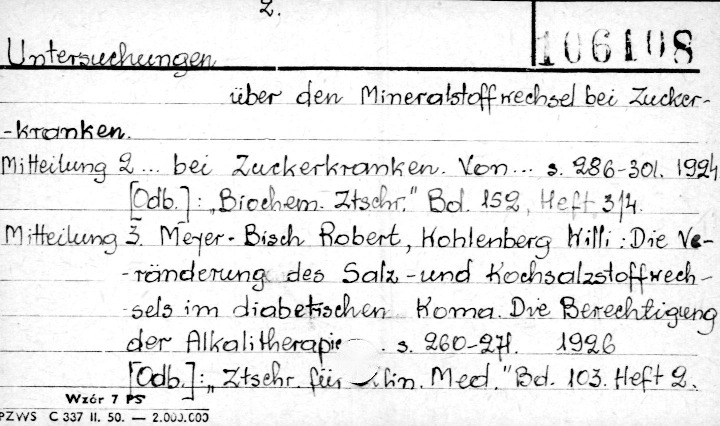 2.
106108
Untersuchungen
über den Mineralstoffwechsel bei Zucker-
-kranken.
Mitteilung 2 ... bei Zuckerkranken. Von ... s. 286-301. 1924
[Odb.]: „Biochem. Ztschr." Bd. 152, Heft 3/4.
Mitteilung 3. Meyer-Bisch Robert, Kohlenberg Willi: Die Ve-
-ränderung des Salz-und Kochsalzstoffwech-
-sels im diabetischen Koma. Die Berechtigung
der Alkalitherapie . s. 260-271. 1926
[Odb.]: „Ztschr. für klin. Med." Bd. 103. Heft 2.
Wzór 7 PS
PZWS C 337 II. 50. — 2.000.000